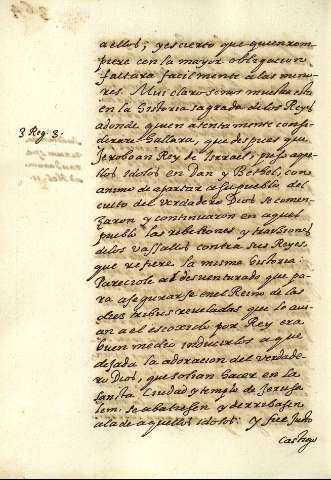 aellos; y es cierto que quien rom-
piere con la mayor obligacion
faltara facilmente a las meno-
res. Mui claro se nos muestra esto
en la historia sagrada de los Reyes
adonde quien atentamente consi-
derare hallara, que despues que
3 Reg. 3.
Jeroboan Rey de Israel; puso aque-
llos idolos en Dan y Bethel; con
animo de apartar a su pueblo del
culto del verdadero Dios se comen-
zaron y continuaron en aquel
pueblo las rebeliones y trayciones
de los vassallos contra sus Reyes
que refiere la misma historia:
Pareciole al desventurado que pa-
ra asegurarse en el Reino de las
diez tribus reveladas que le avi-
an a el escogido por Rey era
buen medio inducirlos a que
dejada la adoracion del verdade-
ro Dios, que solian hacer en la
santa Ciudad y templo de Jerusa-
lem, se abatiesen y derribasen
a la de aquellos idolos. y fue justo
castigo